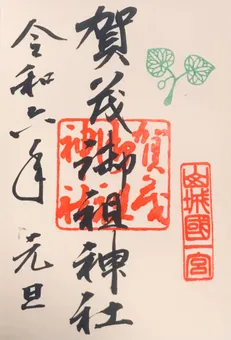 賀茂御祖神社
令和六年 元旦
山城國一宮
賀茂御祖神社